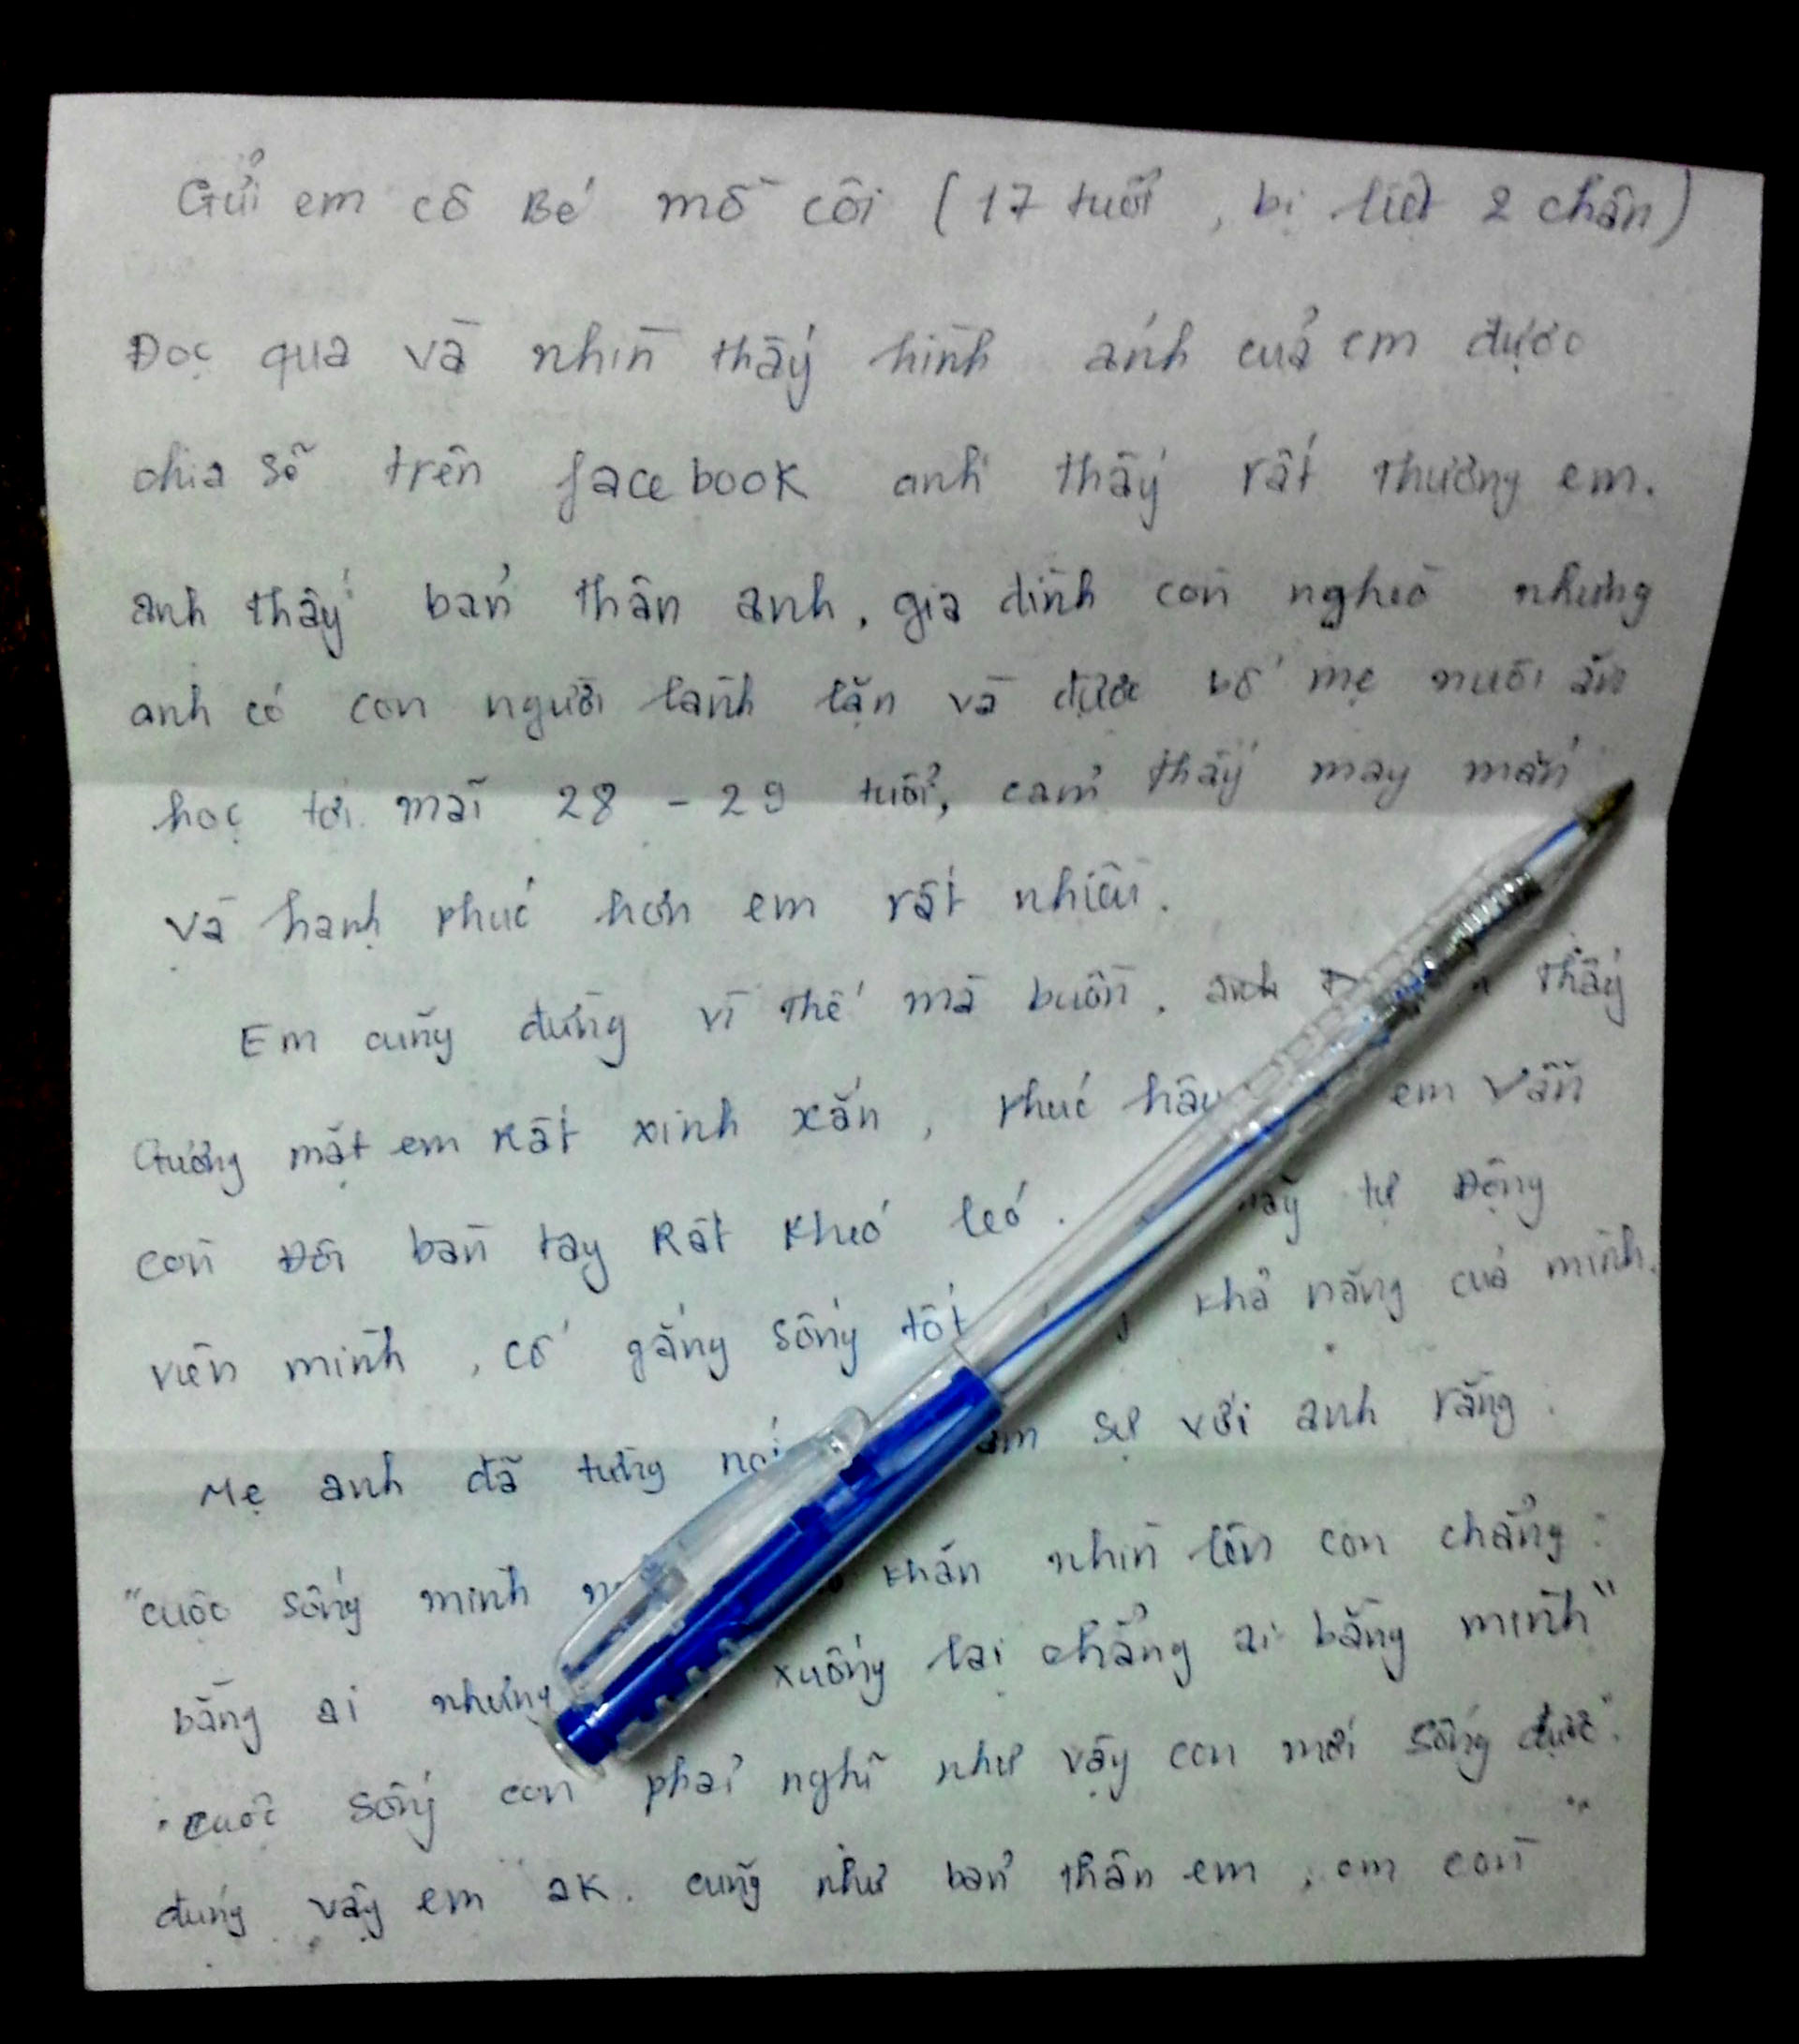 Gửi em cô Bé mồ côi (17 tuổi, bị liệt 2 chân)
Đọc qua và nhìn thấy hình ảnh của em được
chia sẽ trên facebook anh thấy rất thương em.
anh thấy bản thân anh, gia đình còn nghèo nhưng
anh có con người lành lặn và được bố mẹ nuôi ăn
học tới mãi 28 - 29 tuổi, cảm thấy may mắn
và hạnh phúc hơn em rất nhiều.
Em cũng đừng vì thế mà buồn. thấy
Gương mặt em Rất xinh xắn, phúc hậu em vẫn
còn Đôi bàn tay Rất khéo léo. tự Động
viên mình, cố gắng sống tốt khả năng của mình.
Mẹ anh đã từng sự với anh rằng:
"cuộc sống mình khăn nhìn lên con chẳng
bằng ai nhưng xuống lại chẳng ai bằng mình"
"cuộc sống con phải nghĩ như vậy con mới sống được".
đúng vậy em ak. cũng như bản thân em, em còn